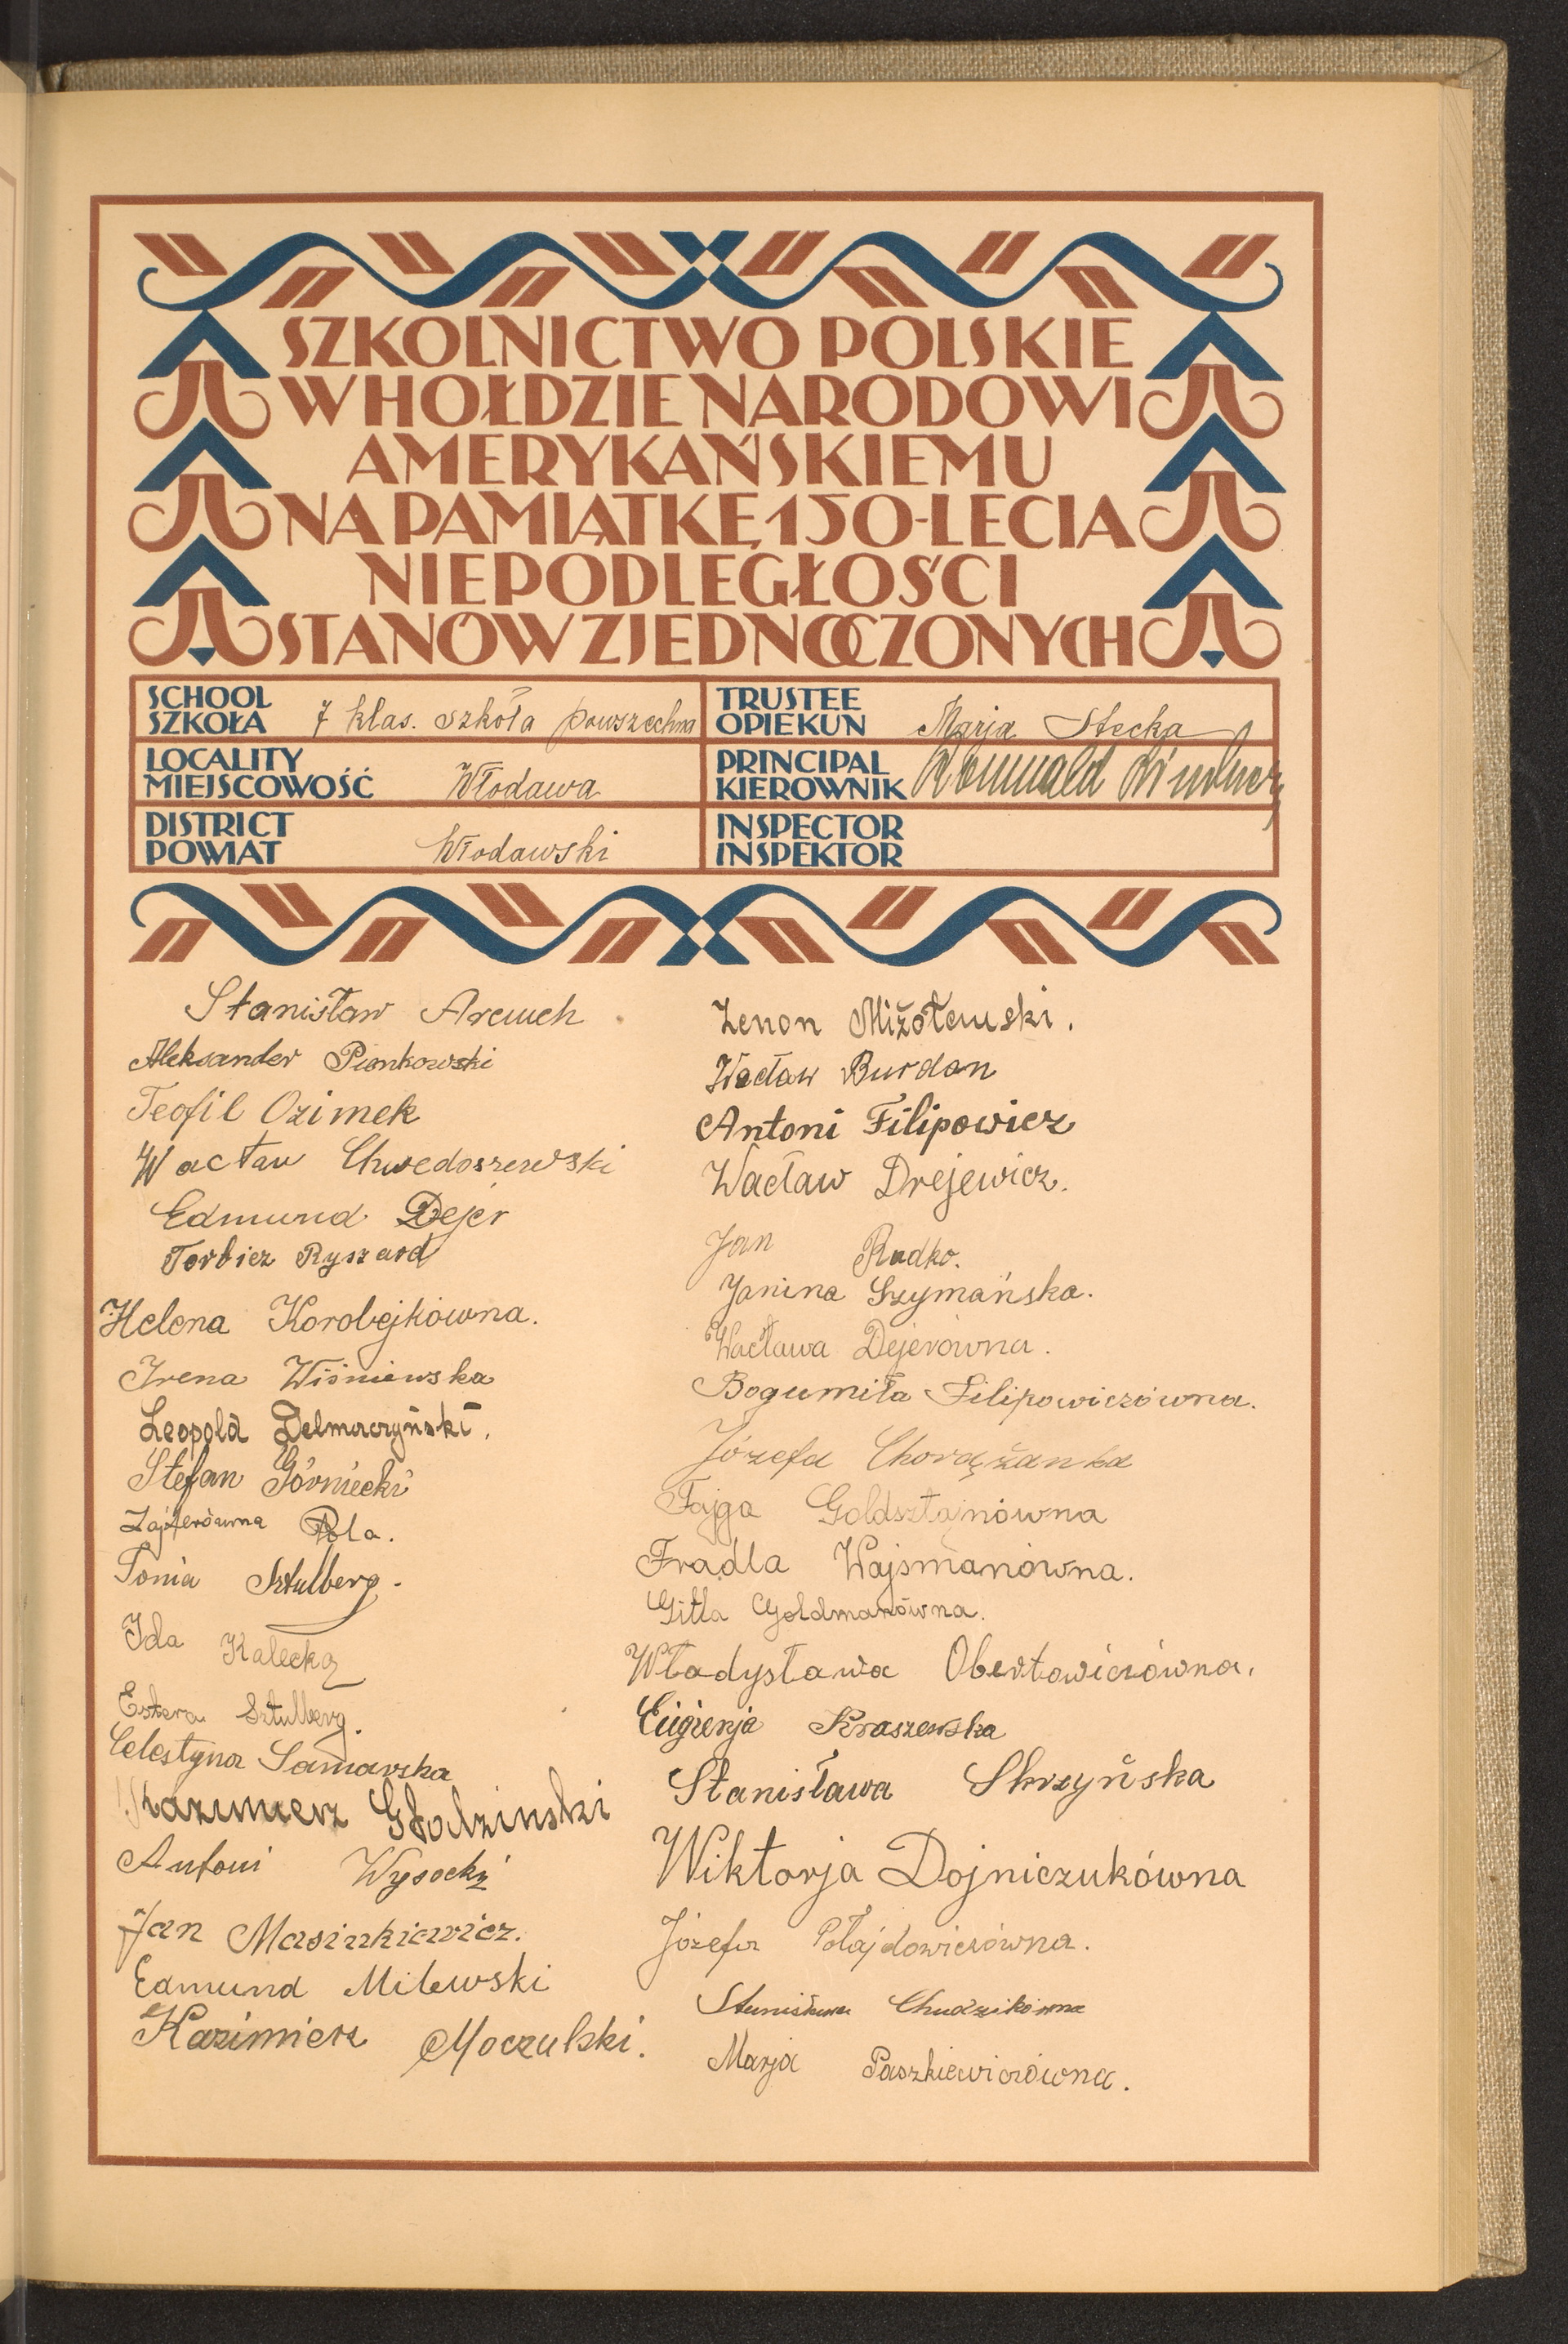 SZKOLNICTWO POLSKIE
W HOŁDZIE NARODOWI
AMERYKAŃSKIEMU
NA PAMIĄTKĘ 150-LECIA
NIEPODLEGŁOŚCI
STANÓW ZJEDNOCZONYCH
SCHOOL
SZKOŁA 7 klas. szkoła powszechna
TRUSTEE
OPIEKUN Marja Stecka
LOCALITY
MIEJSCOWOŚĆ Włodawa
PRINCIPAL
KIEROWNIK Romuald
DISTRICT
POWIAT Włodawski
INSPECTOR
INSPEKTOR
Stanisław
Aleksander Pionkowski
Teofil Ozimek
Wacław Chwedoszewski
Edmund Dejer
Torbicz Ryszard
Helena Korobejkówna.
Irena Wiśniewska
Leopold Delmaczyński.
Stefan Górniecki
Zajferówna Pola.
Tonia Sztulberg.
Ida Kalecka
Estera Sztulberg.
Celestyna Samarska
Kazimierz Głodzinski
Antoni Wysocki
Jan Masinkiewicz.
Edmund Milewski
Kazimierz Moczulski.
Zenon Miżołewski.
Wacław Burdan
Antoni Filipowicz
Wacław Drejewicz.
Jan Rudko.
Janina Szymańska.
Wacława Dejerówna.
Bogumiła Filipowiczówna.
Józefa Chorążanka
Fajga Goldsztajnówna
Fradla Wajsmanówna.
Gitla Goldmanówna.
Władysława Obertowiczówna.
Eugienja Kraszewska
Stanisława Skrzyńska
Wiktorja Dojniczukówna
Józefa Połajdowiczówna.
Stanisława Chudzikówna
Marja Paszkiewiczówna.